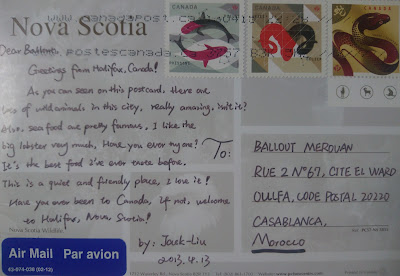 Nova Scotia
CANADA
CANADA
CANADA
www.canadapost.ca
postescanada.
Dear Ballout,
Greetings from Halifax, Canada!
As you can seen on this postcard, there are
lots of wild animals in this city, really amazing, isn't it?
Also, sea food are pretty famous, I like the
big lobster very much, Have you ever try one?
It's the best food I've ever taste before.
This is a quiet and friendly place, I love it!
Have you ever been to Canada, if not, welcome
to Halifax, Nova, Scotia!
by: Jack-Liu
2013.4.13
To:
BALLOUT MEROUAN
RUE 2 N°67, CITE EL WARD
OULFA, CODE POSTAL 20220
CASABLANCA,
Morocco
Nova Scotia Wildlife
Air Mail Par avion
43-074-036 (00-12)